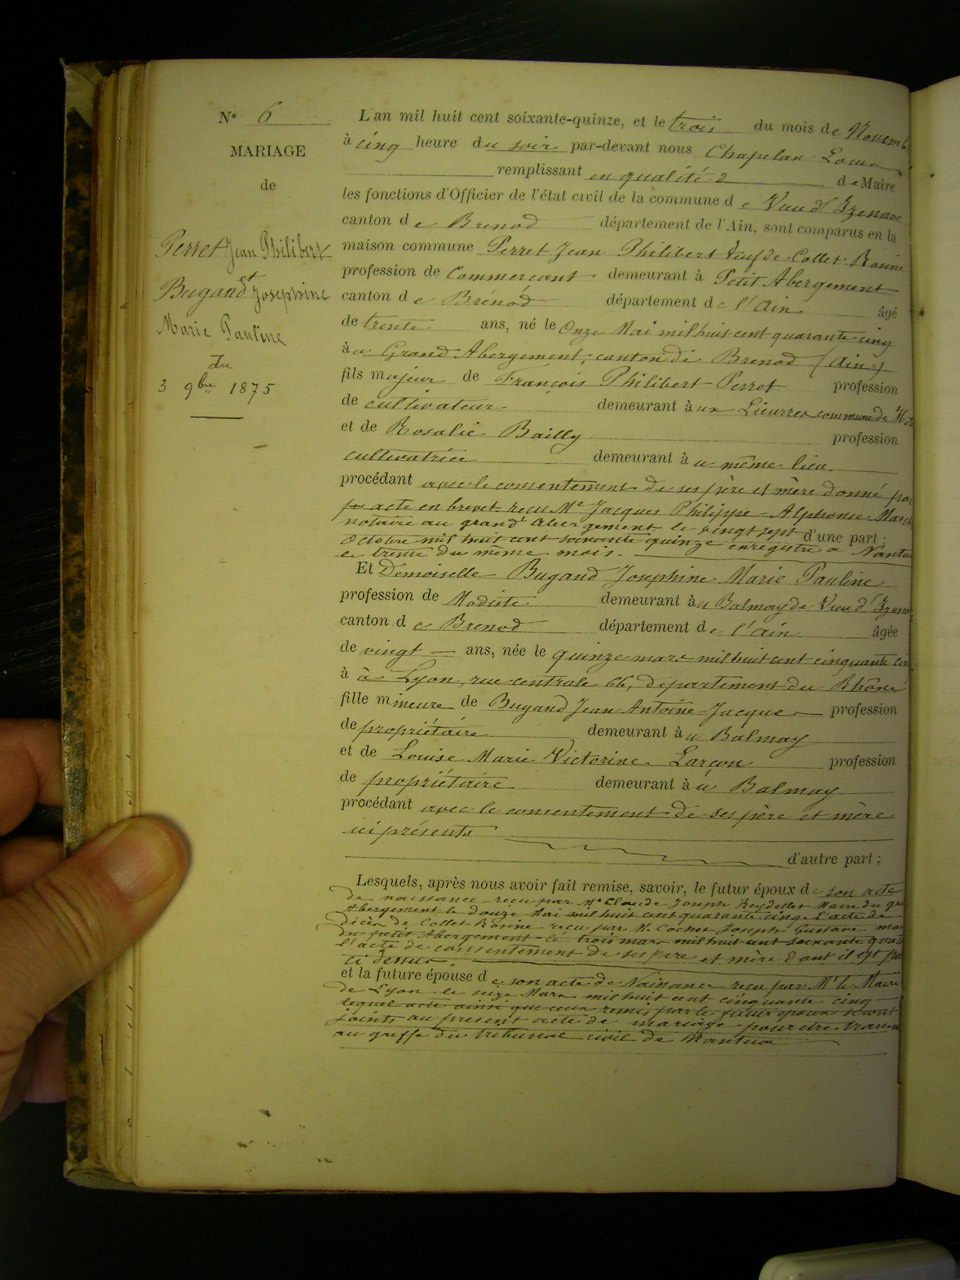 N° 6
MARIAGE
de
Perret Jean Philibert
et
Bugand Josephine
Marie Pauline
du
3 9bre 1875
L'an mil huit cent soixante-quinze, et le trois du mois de Novemb
à cinq heure du soir par-devant nous Chapelan Louis
remplissant en qualité de Maire
les fonctions d'Officier de l'état civil de la commune de Vieu d'Izenave
canton de Brenod département de l'Ain, sont comparus en la
maison commune Perret Jean Philibert Veuf de Collet Rosine
profession de Commercant demeurant à Petit Abergement
canton de Brénod département de l'Ain âgé
de trente ans, né le Onze Mai mil huit cent quarante cinq
à au Grand Abergement, canton de Brenod (Ain)
fils majeur de François Philibert Perret profession
de cultivateur demeurant à aux Lieurres commune de
et de Rosalie Bailly profession
cultivatrice demeurant à au même lieu.
procédant avec le consentement de ses père et mère donné par
acte en brevet reçu Me Jacques Philippe Alphonse
notaire au grand Abergement le vingt sept d'une part ;
Octobre mil huit cent soixante quinze enregistré à Nantua
le trente du même mois.
Et Demoiselle Bugand Josephine Marie Pauline
profession de Modiste demeurant à au Balmay de Vieu d'Izenave
canton de Brenod département de l'Ain âgée
de vingt ans, née le quinze mars mil huit cent cinquante cin
à à Lyon, rue centrale 66, département du Rhône
fille mineure de Bugand Jean Antoine Jacque profession
de propriétaire demeurant à au Balmay
et de Louise Marie Victorine Larçon profession
de propriétaire demeurant à au Balmay
procédant avec le consentement de ses père et mère
ici présents
d'autre part ;
Lesquels, après nous avoir fait remise, savoir, le futur époux de son acte
de naissance reçu par Me Claude Joseph Reydellet Maire du
Abergement le douze Mai mil huit cent quarante cinq. L'acte de
décès de Collet Rosine reçu par M. Cochet Joseph Gustave
du petit Abergement le trois mars mil huit cent soixante
l'acte de consentement de ses père et mère dont il est
ci dessus.
et la future épouse de son acte de Naissance reçu par Mr le Maire
de Lyon le seize Mars mil huit cent cinquante cinq
lequel acte ainsi que ceux remis par le futur époux seront
joints au présent acte de mariage pour être
au greffe du tribunal civil de Nantua